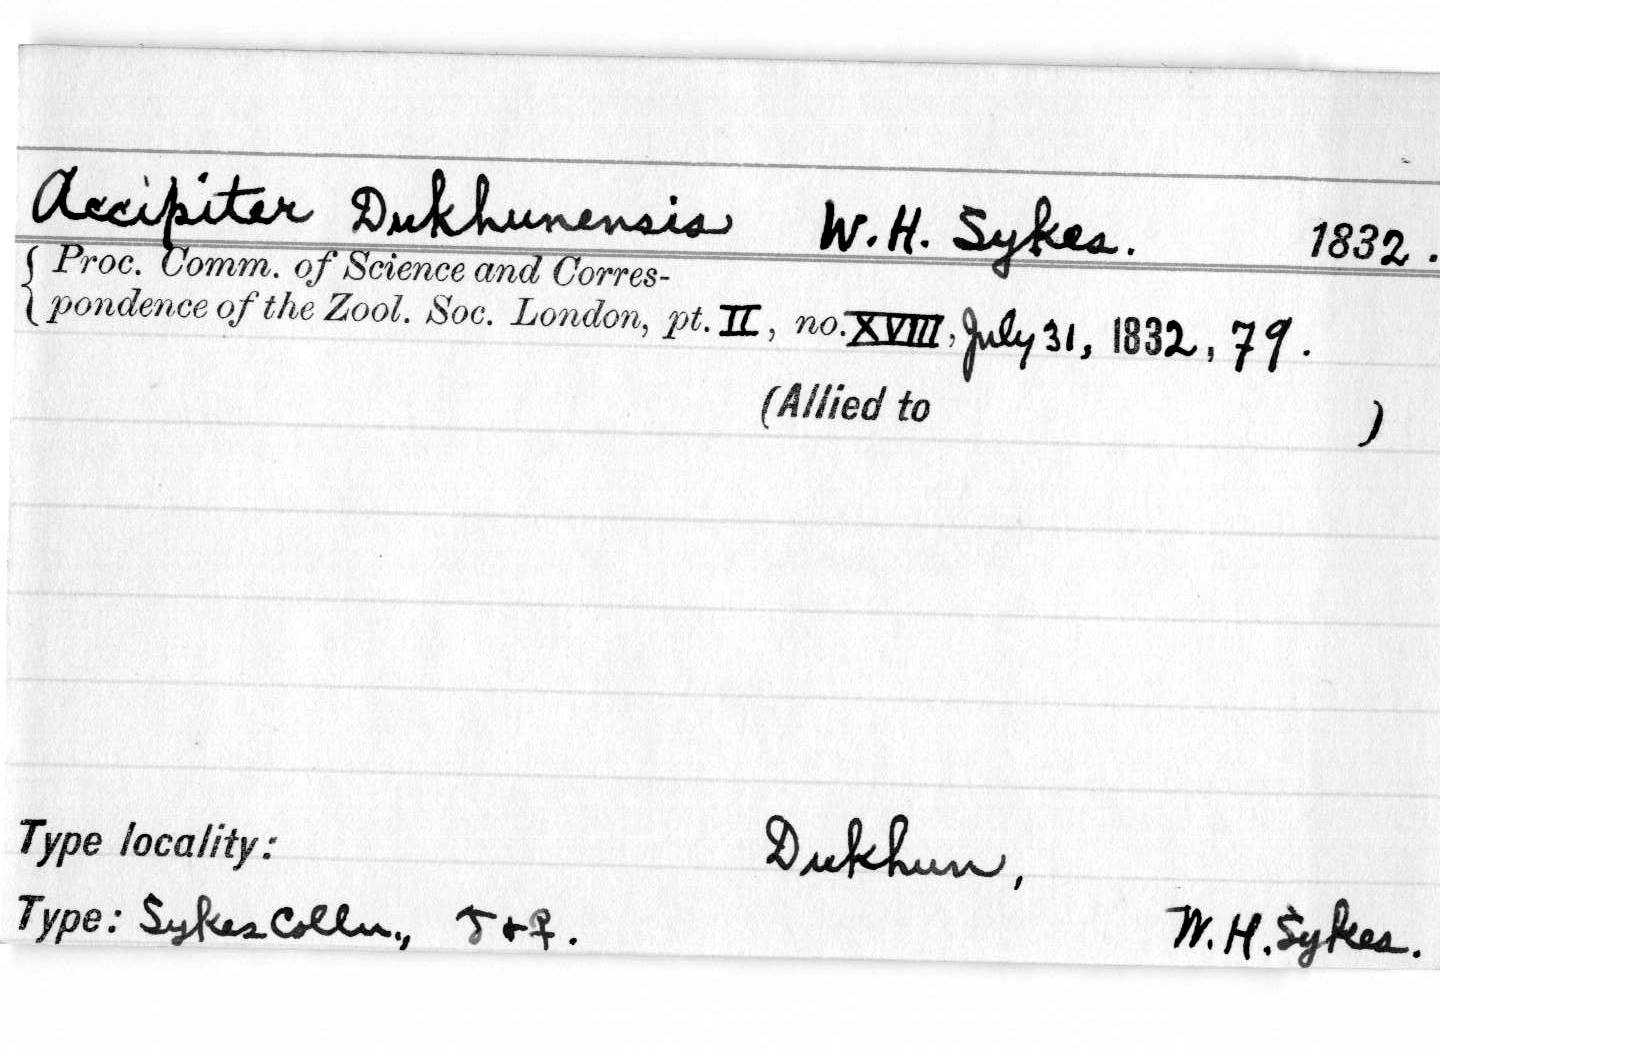 Accipiter Dukhunensis W. H. Sykes. 1832.
Proc. Comm. of Science and Corres-
pondence of the Zool. Soc. London, pt. II, no. XVIII, July 31, 1832, 79.
(Allied to )
Type locality: Dukhun,
Type: Sykes Colln., ♂ + ♀. W. H. Sykes.